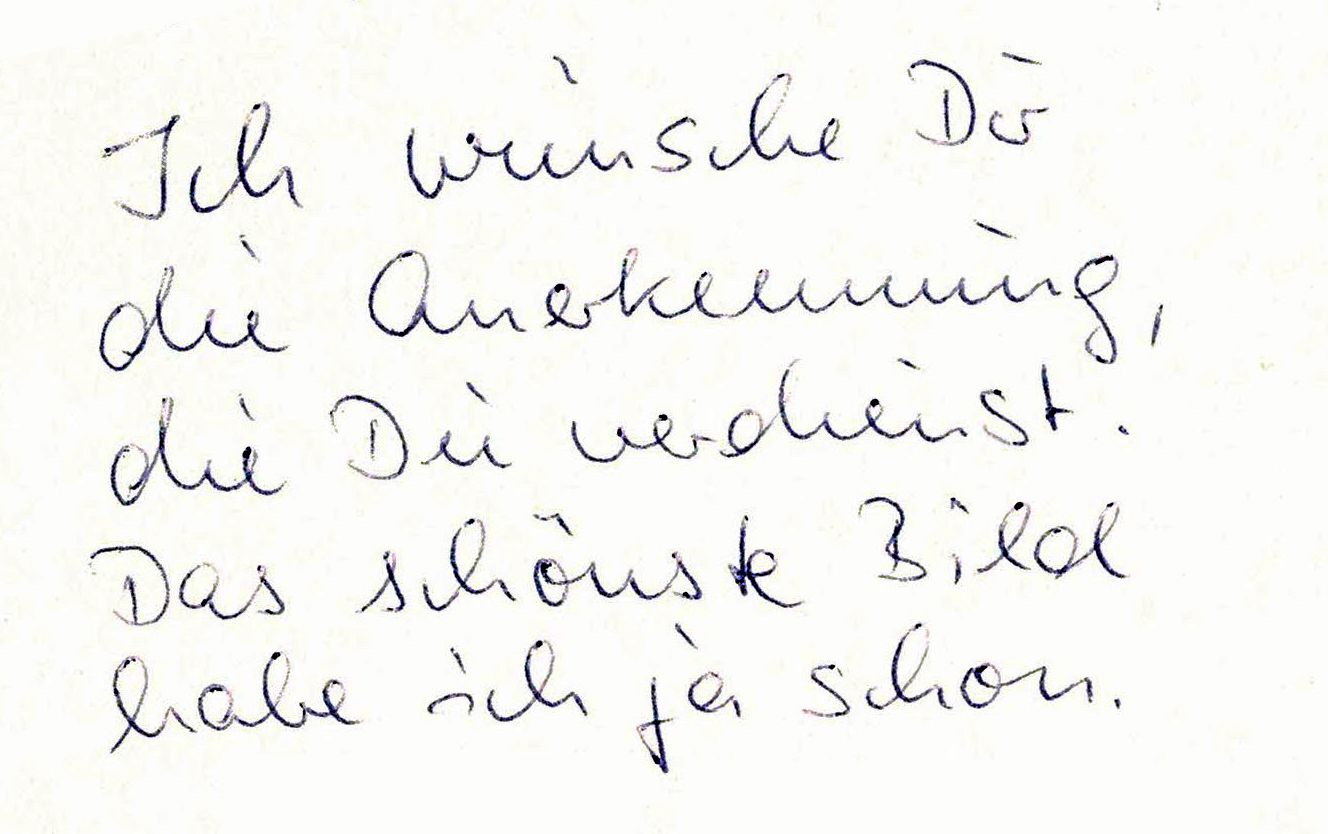 Ich wünsche Dir
die Anerkennung,
die Du verdienst.
Das schönste Bild
habe ich ja schon.